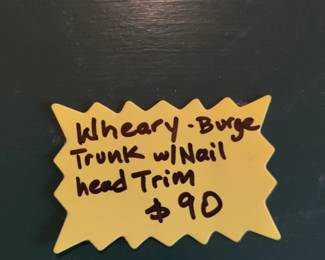 Wheary - Burge
Trunk w/Nail
head Trim
$90